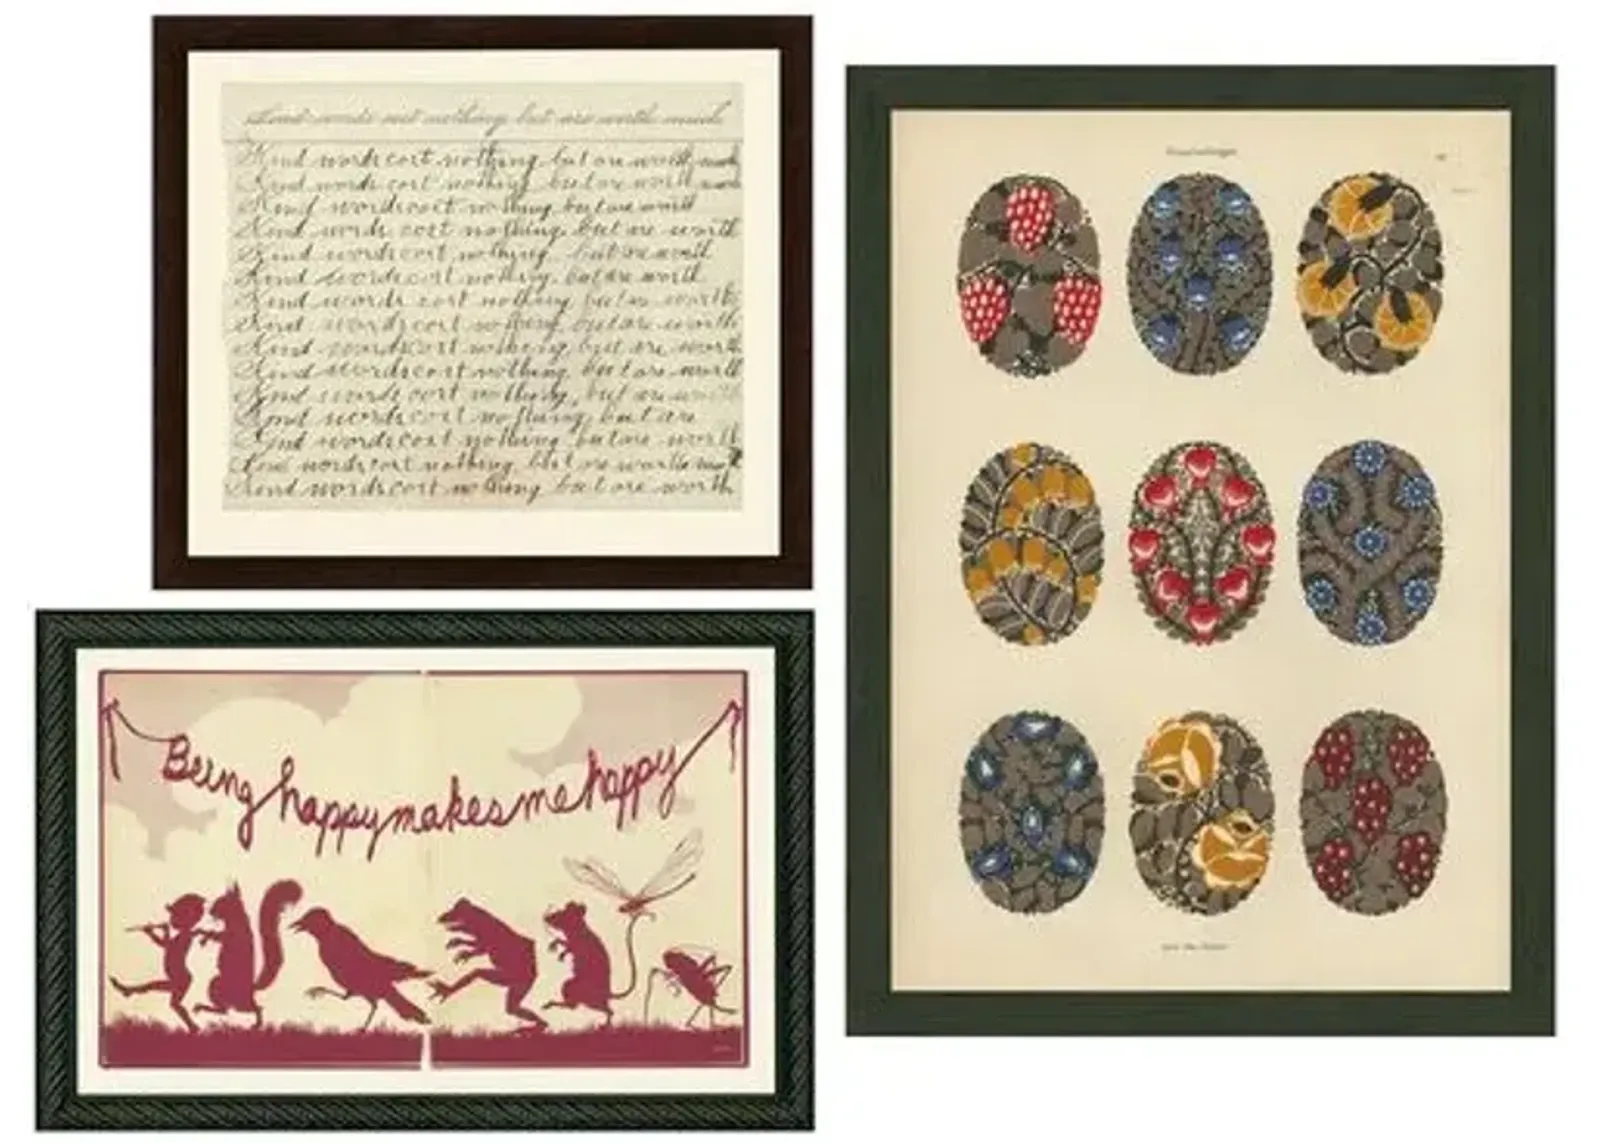 Kind words cost nothing but are worth much
Kind words cost nothing but are worth much
Kind words cost nothing but are worth much
Kind words cost nothing but are worth
Kind words cost nothing, but are worth
Kind words cost nothing, but are worth
Kind words cost nothing, but are worth
Kind words cost nothing but are worth
Kind words cost nothing, but are worth
Kind words cost nothing, but are worth
Kind words cost nothing, but are worth
Kind words cost nothing, but are worth
Kind words cost nothing, but are
Kind words cost nothing but are worth
Kind words cost nothing, but are worth much
Kind words cost nothing but are worth
Being happy makes me happy